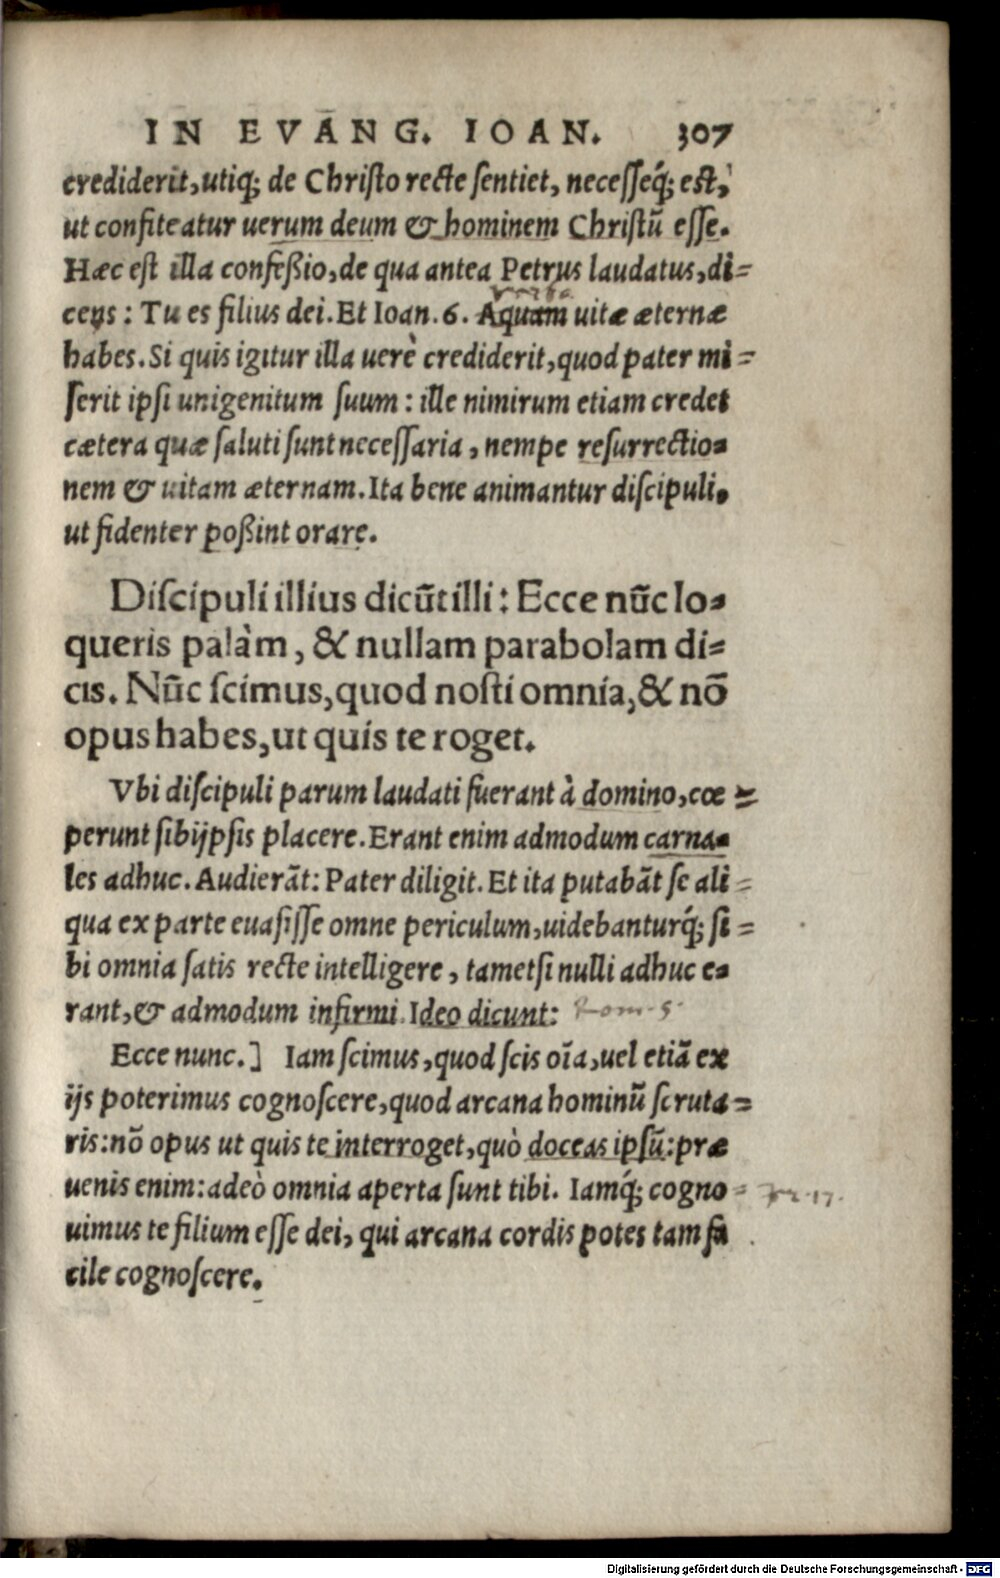 IN EVANG. IOAN. 307
crediderit, utiq; de Christo recte sentiet, necesseq́; est,
ut confiteatur uerum deum & hominem Christū esse.
Hæc est illa confeßio, de qua antea Petrus laudatus, di=
cens: Tu es filius dei. Et Ioan. 6. Aquam uitæ æternæ
uerba
habes. Si quis igitur illa uerè crediderit, quod pater mi=
serit ipsi unigenitum suum: ille nimirum etiam credet
cætera quæ saluti sunt necessaria, nempe resurrectio=
nem & uitam æternam. Ita bene animantur discipuli,
ut fidenter poßint orare.
Discipuli illius dicūt illi: Ecce nūc lo=
queris palàm, & nullam parabolam di=
cis. Nūc scimus, quod nosti omnia, & nō
opus habes, ut quis te roget.
Vbi discipuli parum laudati fuerant à domino, cœ=
perunt sibijpsis placere. Erant enim admodum carna=
les adhuc. Audierāt: Pater diligit. Et ita putabāt se ali=
qua ex parte euasisse omne periculum, uidebanturq́; si=
bi omnia satis recte intelligere, tametsi nulli adhuc e=
rant, & admodum infirmi. Ideo dicunt: Rom. 5.
Ecce nunc.] Iam scimus, quod scis oīa, uel etiā ex
ijs poterimus cognoscere, quod arcana hominū scruta=
ris: nō opus ut quis te interroget, quò doceas ipsū: præ
uenis enim: adeò omnia aperta sunt tibi. Iamq́; cogno= 17.
uimus te filium esse dei, qui arcana cordis potes tam fa
cile cognoscere.
Digitalisierung gefördert durch die Deutsche Forschungsgemeinschaft - DFG